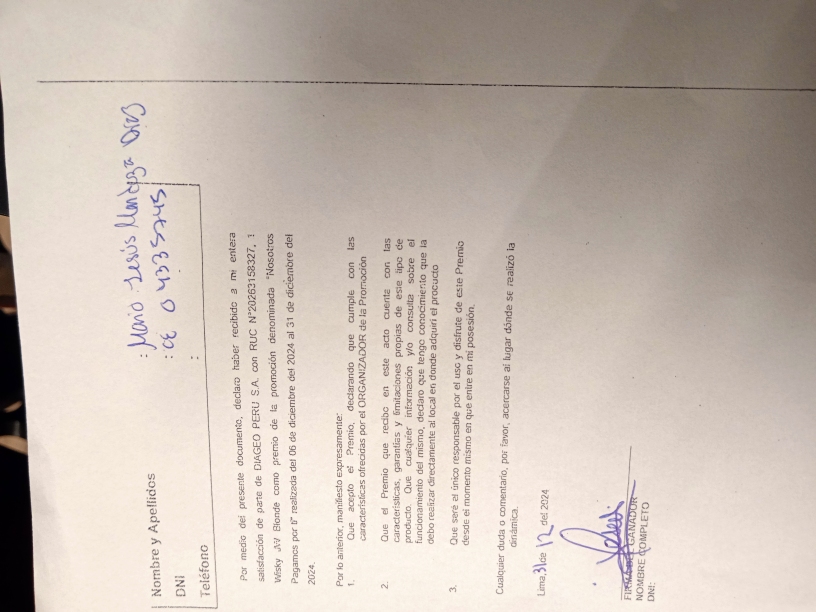 Nombre y Apellidos : Mario Jesús Mendoza Díaz
DNI : CE 04335245
Teléfono :
Por medio del presente documento, declaro haber recibido a mi entera
satisfacción de parte de DIAGEO PERU S.A. con RUC N°20263158327, 1
Wisky JW Blonde como premio de la promoción denominada "Nosotros
Pagamos por ti" realizada del 06 de diciembre del 2024 al 31 de diciembre del
2024.
Por lo anterior, manifiesto expresamente:
1. Que acepto el Premio, declarando que cumple con las
características ofrecidas por el ORGANIZADOR de la Promoción
2. Que el Premio que recibo en este acto cuenta con las
características, garantías y limitaciones propias de este tipo de
producto. Que cualquier información y/o consulta sobre el
funcionamiento del mismo, declaro que tengo conocimiento que la
debo realizar directamente al local en donde adquirí el producto
3. Que seré el único responsable por el uso y disfrute de este Premio
desde el momento mismo en que entre en mi posesión.
Cualquier duda o comentario, por favor, acercarse al lugar dónde se realizó la
dinámica.
Lima, 31 de 12 del 2024
FIRMA DEL GANADOR
NOMBRE COMPLETO
DNI: